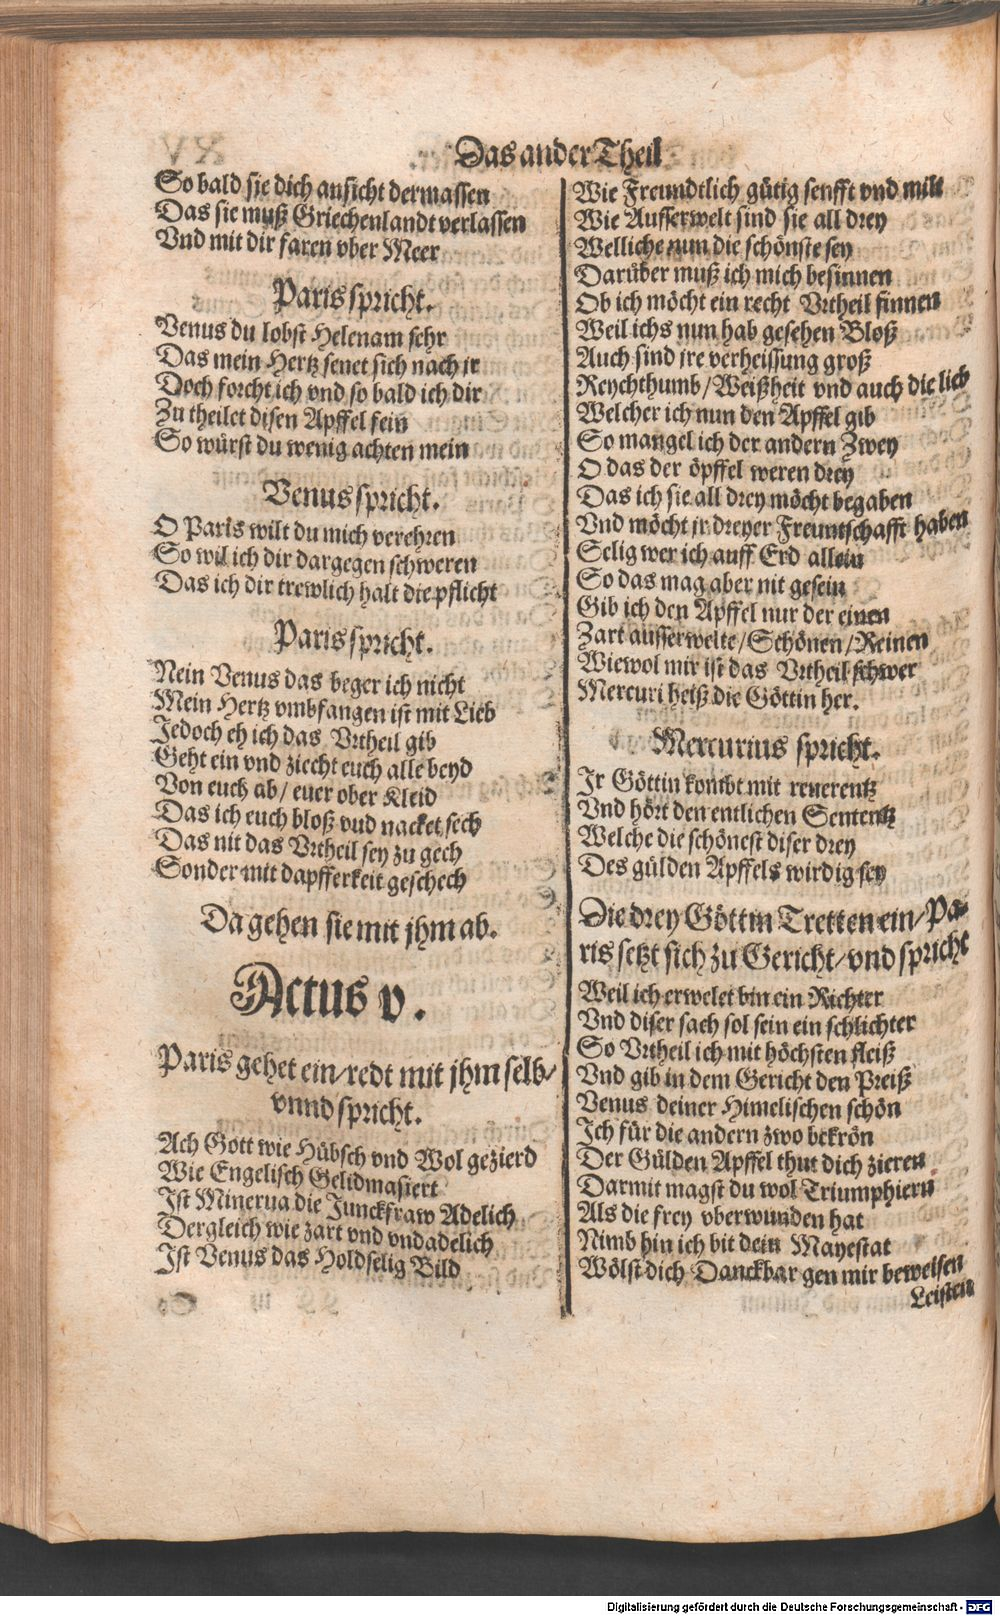 Das ander Theil
So bald sie dich ansicht dermassen
Das sie muß Griechenlandt verlassen
Vnd mit dir faren vber Meer
Paris spricht.
Venus du lobst Helenam sehr
Das mein Hertz senet sich nach jr
Doch forcht ich vnd so bald ich dir
Zu theilet disen Apffel fein
So würst du wenig achten mein
Venus spricht.
O Paris wilt du mich verehren
So wil ich dir dargegen schweren
Das ich dir trewlich halt die pflicht
Paris spricht.
Nein Venus das beger ich nicht
Mein Hertz vmbfangen ist mit Lieb
Jedoch eh ich das Vrtheil gib
Geht ein vnd ziecht euch alle beyd
Von euch ab/ euer ober Kleid
Das ich euch bloß vnd nacket sech
Das nit das Vrtheil sey zu gech
Sonder mit dapfferkeit geschech
Da gehen sie mit jhm ab.
Actus v.
Paris gehet ein/redt mit jhm selb/
vnnd spricht.
Ach Gott wie Hübsch vnd Wol gezierd
Wie Engelisch Gelidmasiert
Ist Minerua die Junckfraw Adelich
Dergleich wie zart vnd vndadelich
Ist Venus das Holdselig Bild
Wie Freundtlich gütig senfft vnd milt
Wie Ausserwelt sind sie all drey
Welliche nun die schönste sey
Darüber muß ich mich besinnen
Ob ich möcht ein recht Vrtheil finnen
Weil ichs nun hab gesehen Bloß
Auch sind jre verheissung groß
Reychthumb/Weißheit vnd auch die lieb
Welcher ich nun den Apffel gib
So mangel ich der andern Zwey
O das der öpffel weren drey
Das ich sie all drey möcht begaben
Vnd möcht jr dreyer Freuntschafft haben
Selig wer ich auff Erd allein
So das mag aber nit gesein
Gib ich den Apffel nur der einen
Zart ausserwelte/Schönen/Reinen
Wiewol mir ist das Vrtheil schwer
Mercuri heiß die Göttin her.
Mercurius spricht.
Ir Göttin kombt mit reuerentz
Vnd hört den entlichen Sententz
Welche die schönest diser drey
Des gülden Apffels wirdig sey
Die drey Göttin Tretten ein/Pa-
ris setzt sich zu Gericht/vnd spricht
Weil ich erwelet bin ein Richter
Vnd diser sach sol sein ein schlichter
So Vrtheil ich mit höchsten fleiß
Vnd gib in dem Gericht den Preiß
Venus deiner Himelischen schön
Ich für die andern zwo bekrön
Der Gülden Apffel thut dich zieren
Darmit magst du wol Triumphiern
Als die frey vberwunden hat
Nimb hin ich bit dein Mayestat
Wölst dich Danckbar gen mir beweisen
Leisten
Digitalisierung gefördert durch die Deutsche Forschungsgemeinschaft - DFG